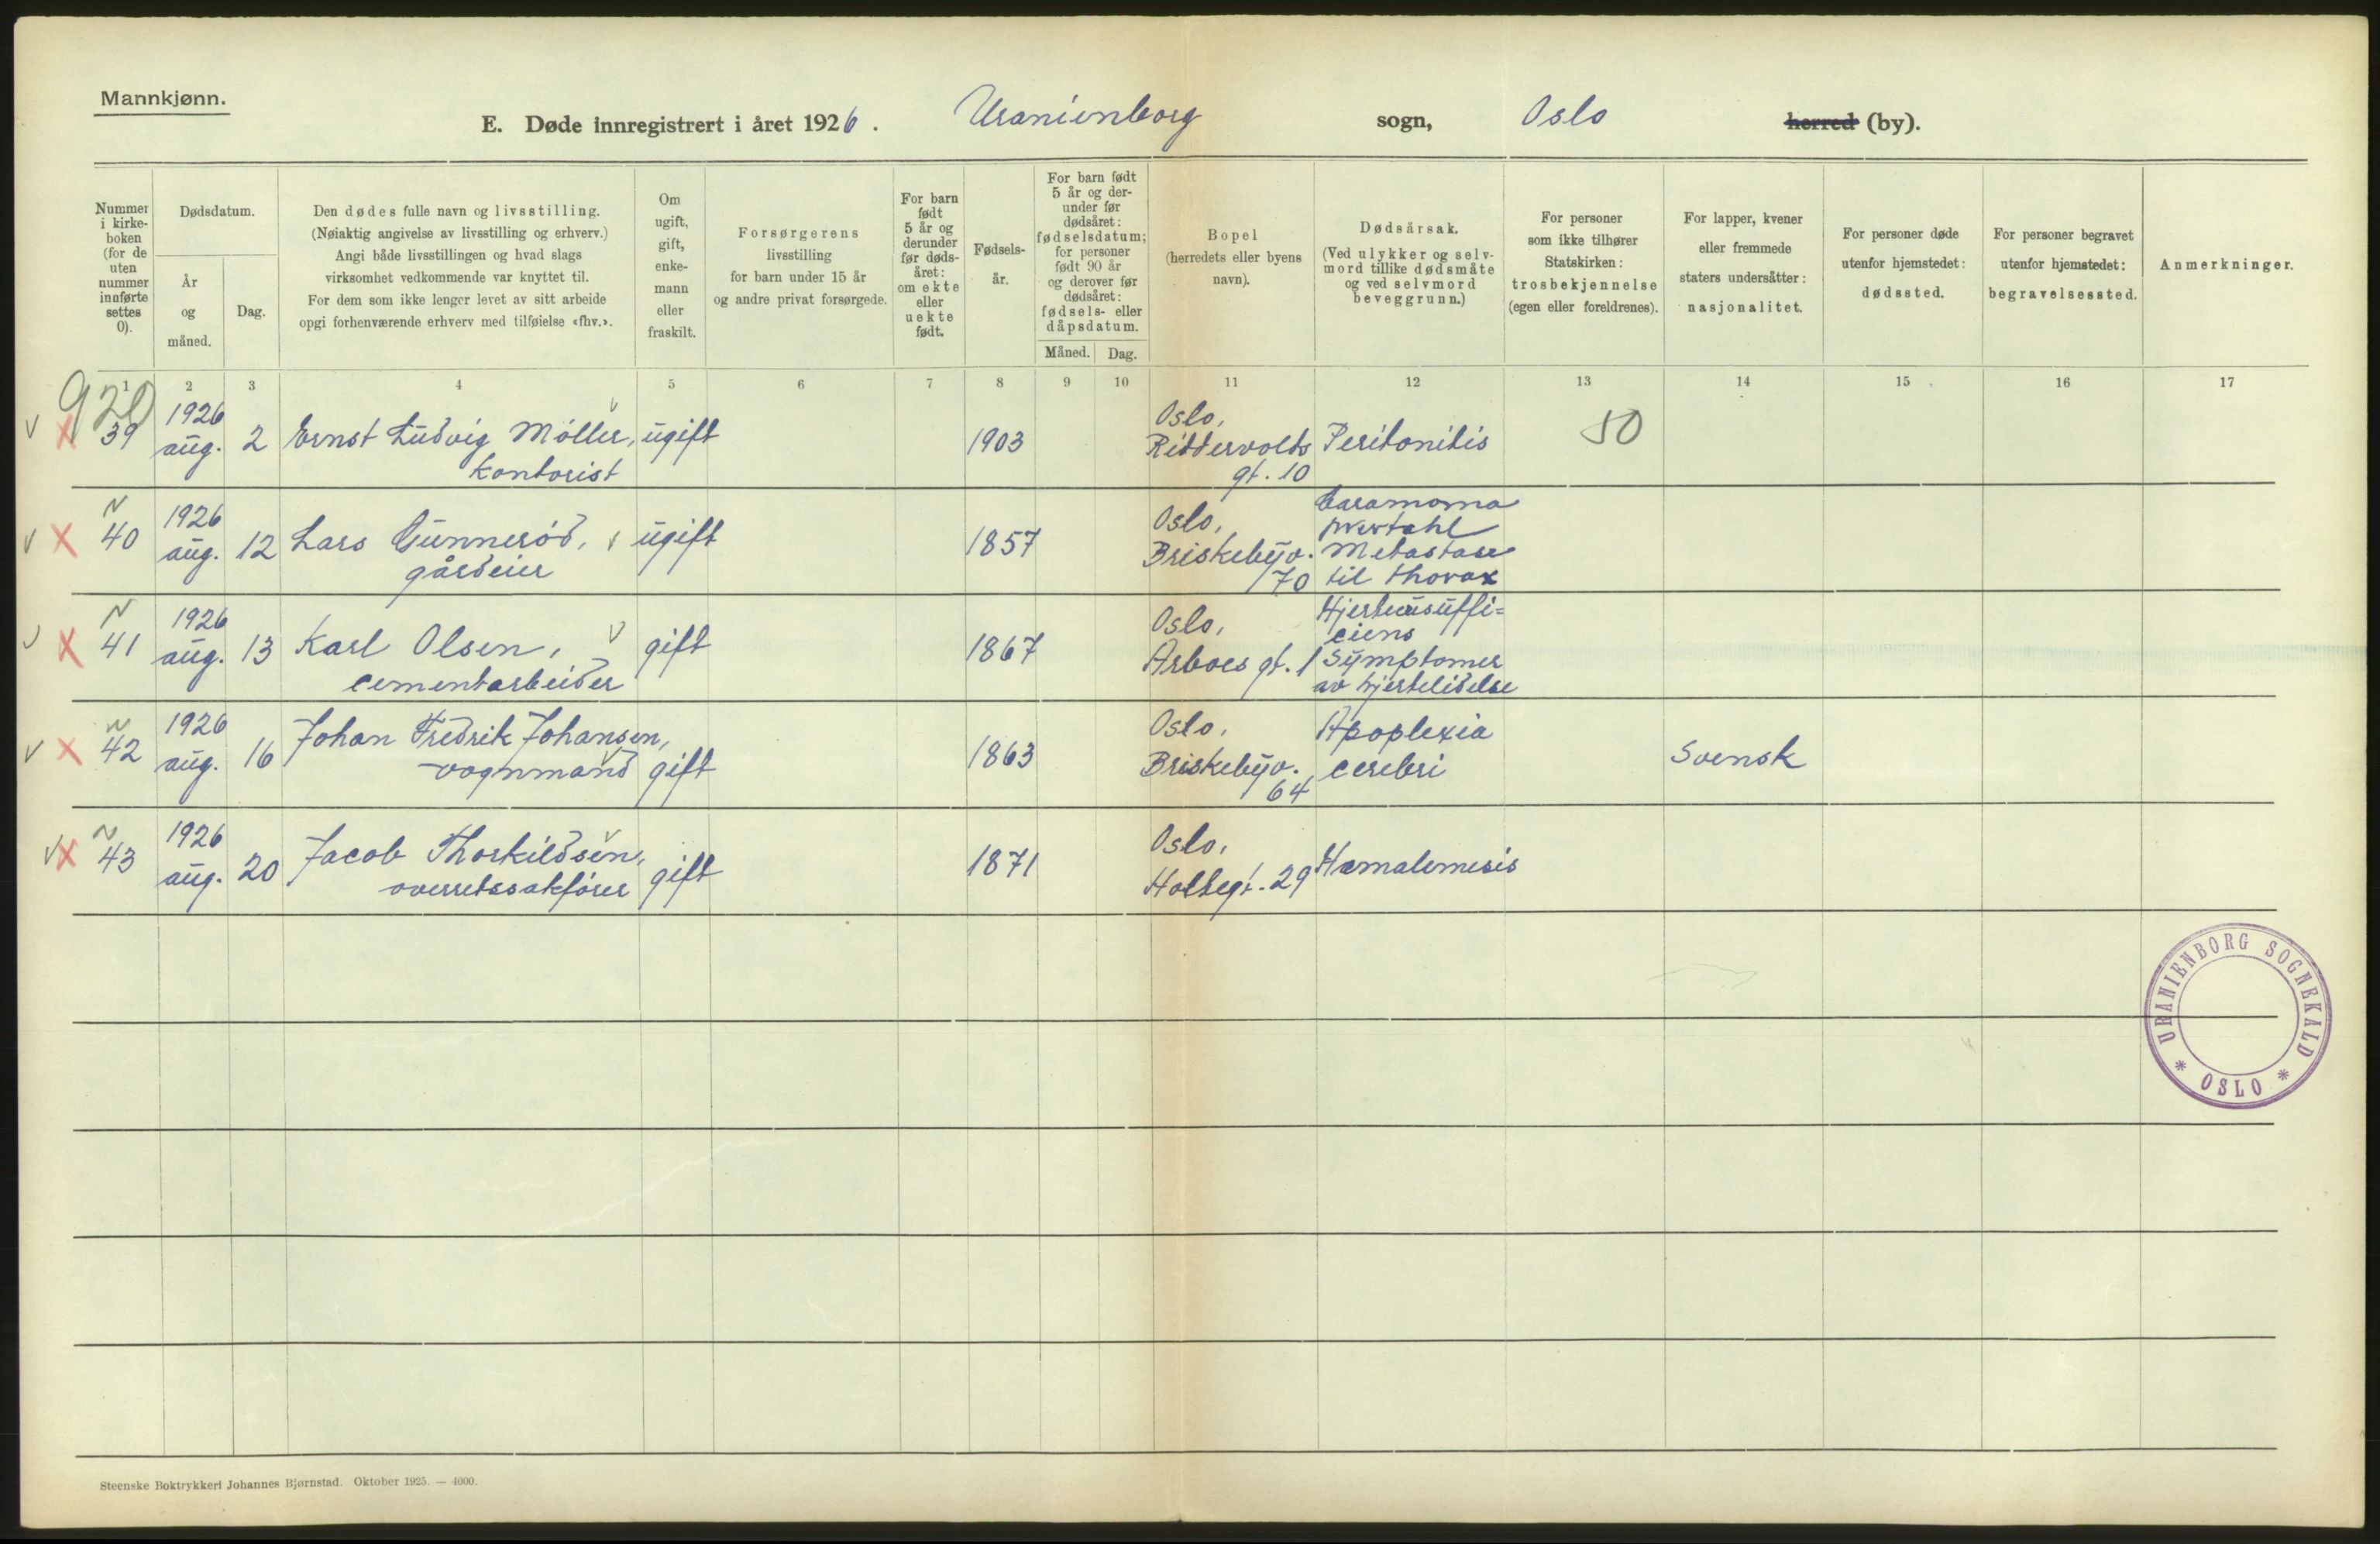 Mannkjønn.
E. Døde innregistrert i året 1926. Uranienborg sogn, Oslo herred (by).
Nummer i kirkeboken (for de uten nummer innførte settes 0).
Dødsdatum.
År og måned.
Dag.
Den dødes fulle navn og livsstilling.
(Nøiaktig angivelse av livsstilling og erhverv.)
Angi både livsstillingen og hvad slags
virksomhet vedkommende var knyttet til.
For dem som ikke lenger levet av sitt arbeide
opgi forhenværende erhverv med tilføielse «fhv.».
Om ugift, gift, enkemann eller fraskilt.
Forsørgerens
livsstilling
for barn under 15 år
og andre privat forsørgede.
For barn født 5 år og derunder før dødsåret: om ekte eller uekte født.
Fødselsår.
For barn født 5 år og derunder før dødsåret: fødselsdatum; for personer født 90 år og derover før dødsåret: fødsels- eller dåpsdatum.
Måned. Dag.
Bopel
(herredets eller byens
navn).
Dødsårsak.
(Ved ulykker og selvmord tillike dødsmåte og ved selvmord beveggrunn.)
For personer
som ikke tilhører
Statskirken:
trosbekjennelse
(egen eller foreldrenes).
For lapper, kvener
eller fremmede
staters undersåtter:
nasjonalitet.
For personer døde
utenfor hjemstedet:
dødssted.
For personer begravet
utenfor hjemstedet:
begravelsessted.
Anmerkninger.
1 2 3 4 5 6 7 8 9 10 11 12 13 14 15 16 17
920
39 1926 aug. 2 Ernst Ludvig Møller, kontorist ugift 1903 Oslo, Riddervolds gt. 10 Peritonitis 50
40 1926 aug. 12 Lars Gunnerød, gårdeier ugift 1857 Oslo, Briskebyv. 70 Metastase til thorax
41 1926 aug. 13 Karl Olsen, cementarbeider gift 1867 Oslo, Arboes gt. 1 Symptomer av hjertelidelse
42 1926 aug. 16 Johan Fredrik Johansen, vognmand gift 1863 Oslo, Briskebyv. 64 Apoplexia cerebri Svensk
43 1926 aug. 20 Jacob Thorkildsen, overretssakfører gift 1871 Oslo, Holtegt. 29 Hæmatemesis
URANIENBORG SOGNEKALD
* OSLO *
Steenske Boktrykkeri Johannes Bjørnstad. Oktober 1925. — 4000.